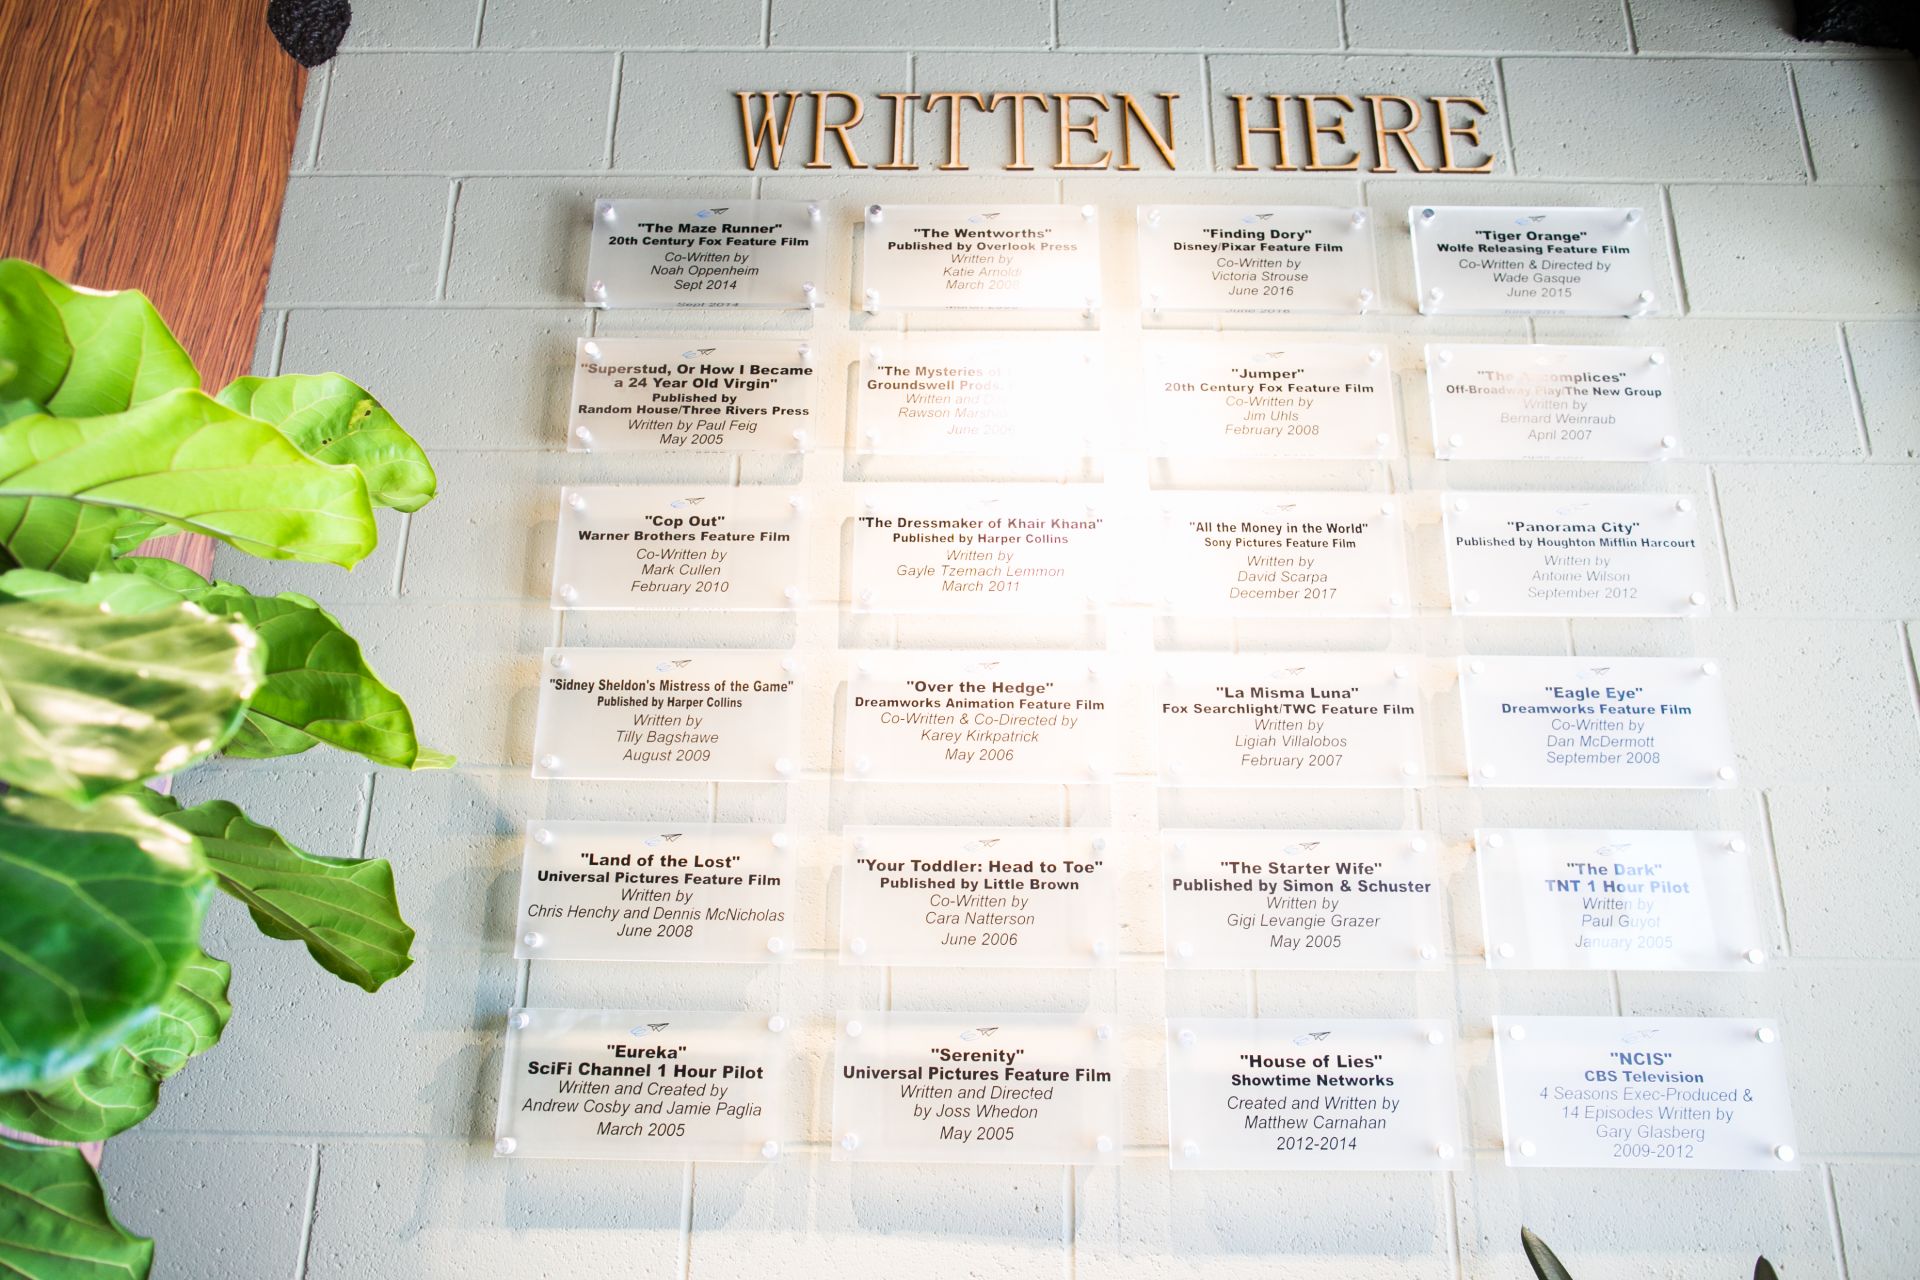 WRITTEN HERE
"The Maze Runner"
20th Century Fox Feature Film
Co-Written by
Noah Oppenheim
Sept 2014
"The Wentworths"
Published by Overlook Press
Written by
Katie Arnoldi
March 2008
"Finding Dory"
Disney/Pixar Feature Film
Co-Written by
Victoria Strouse
June 2016
"Tiger Orange"
Wolfe Releasing Feature Film
Co-Written & Directed by
Wade Gasque
June 2015
"Superstud, Or How I Became
a 24 Year Old Virgin"
Published by
Random House/Three Rivers Press
Written by Paul Feig
May 2005
"The Mysteries of
Groundswell Prods.
Written and
Rawson
June 2006
"Jumper"
20th Century Fox Feature Film
Co-Written by
Jim Uhls
February 2008
"The Accomplices"
Off-Broadway Play/The New Group
Written by
Bernard Weinraub
April 2007
"Cop Out"
Warner Brothers Feature Film
Co-Written by
Mark Cullen
February 2010
"The Dressmaker of Khair Khana"
Published by Harper Collins
Written by
Gayle Tzemach Lemmon
March 2011
"All the Money in the World"
Sony Pictures Feature Film
Written by
David Scarpa
December 2017
"Panorama City"
Published by Houghton Mifflin Harcourt
Written by
Antoine Wilson
September 2012
"Sidney Sheldon's Mistress of the Game"
Published by Harper Collins
Written by
Tilly Bagshawe
August 2009
"Over the Hedge"
Dreamworks Animation Feature Film
Co-Written & Co-Directed by
Karey Kirkpatrick
May 2006
"La Misma Luna"
Fox Searchlight/TWC Feature Film
Written by
Ligiah Villalobos
February 2007
"Eagle Eye"
Dreamworks Feature Film
Co-Written by
Dan McDermott
September 2008
"Land of the Lost"
Universal Pictures Feature Film
Written by
Chris Henchy and Dennis McNicholas
June 2008
"Your Toddler: Head to Toe"
Published by Little Brown
Co-Written by
Cara Natterson
June 2006
"The Starter Wife"
Published by Simon & Schuster
Written by
Gigi Levangie Grazer
May 2005
"The Dark"
TNT 1 Hour Pilot
Written by
Paul Guyot
January 2005
"Eureka"
SciFi Channel 1 Hour Pilot
Written and Created by
Andrew Cosby and Jamie Paglia
March 2005
"Serenity"
Universal Pictures Feature Film
Written and Directed
by Joss Whedon
May 2005
"House of Lies"
Showtime Networks
Created and Written by
Matthew Carnahan
2012-2014
"NCIS"
CBS Television
4 Seasons Exec-Produced &
14 Episodes Written by
Gary Glasberg
2009-2012